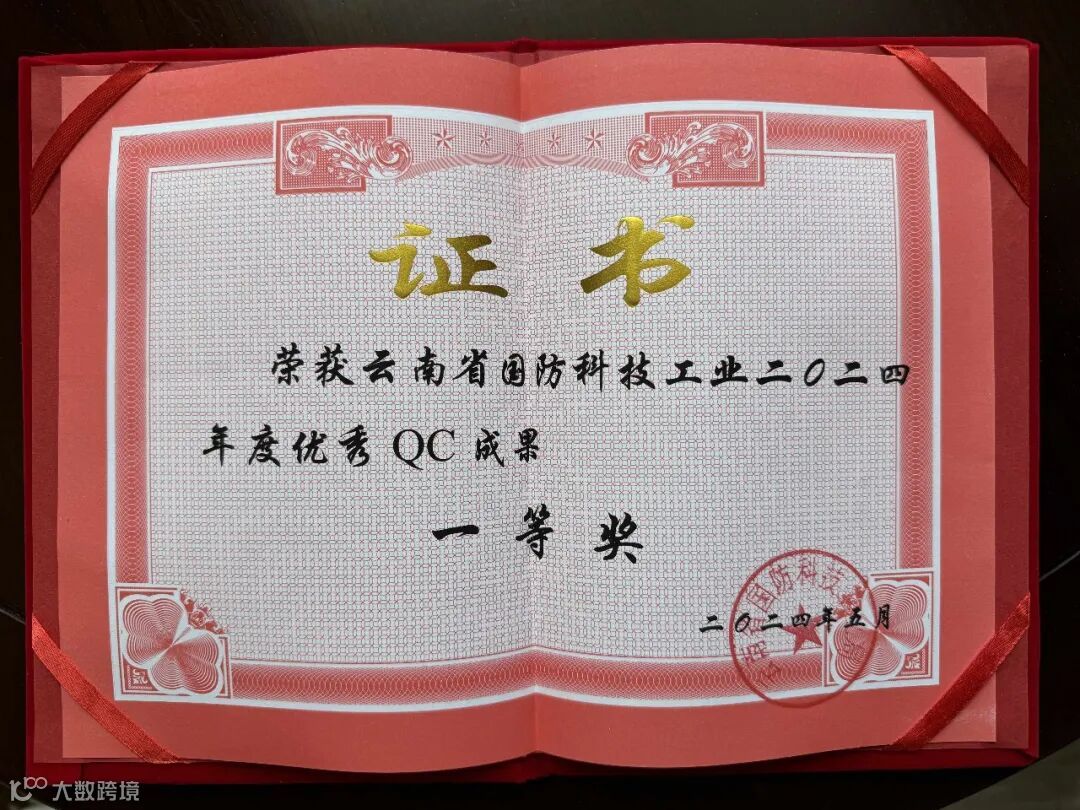 证书
荣获云南省国防科技工业二〇二四
年度优秀QC成果
一等奖
二〇二四年五月
云南省国防科技
大数跨境